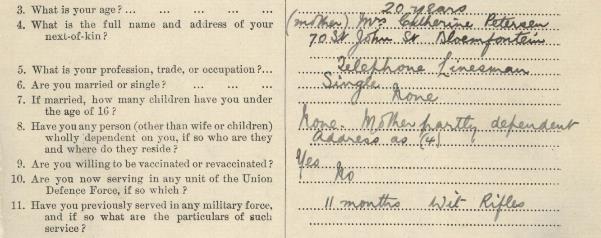 3. What is your age? ... ... ... ... 20 years
4. What is the full name and address of your next-of-kin? ... ... ... ... (mother) Mrs Catherine Petersen
70 St John St Bloemfontein
5. What is your profession, trade, or occupation?... Telephone Linesman
6. Are you married or single? ... ... ... Single
7. If married, how many children have you under the age of 16? ... ... ... ... None
8. Have you any person (other than wife or children) wholly dependent on you, if so who are they and where do they reside? None. Mother partly dependent
Address as (4)
9. Are you willing to be vaccinated or revaccinated? Yes
10. Are you now serving in any unit of the Union Defence Force, if so which? No
11. Have you previously served in any military force, and if so what are the particulars of such service? 11 months Wit Rifles